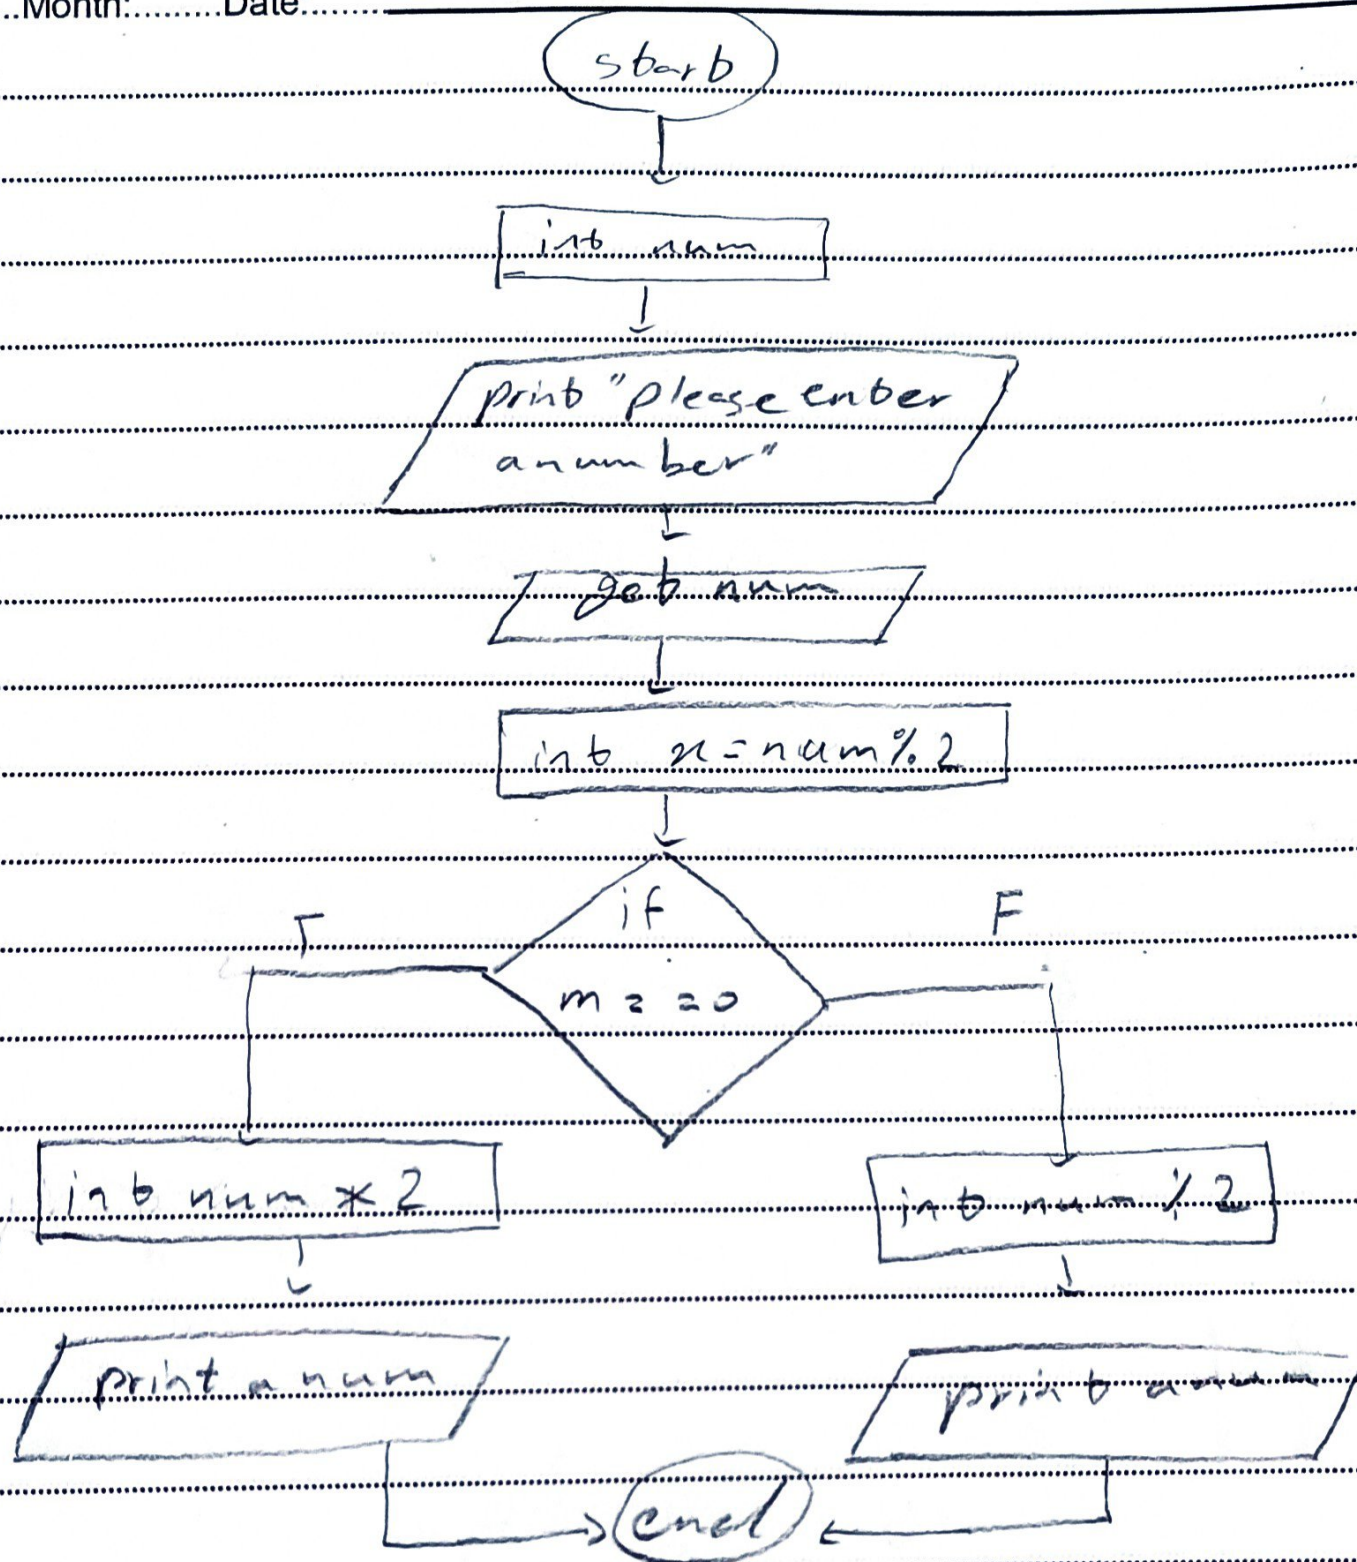 ..Month:.........Date.........
start
int num
print "please enter
a number"
get num
int x = num % 2
if
T
F
m = = 0
int num * 2
int num % 2
print a num
print a num
end